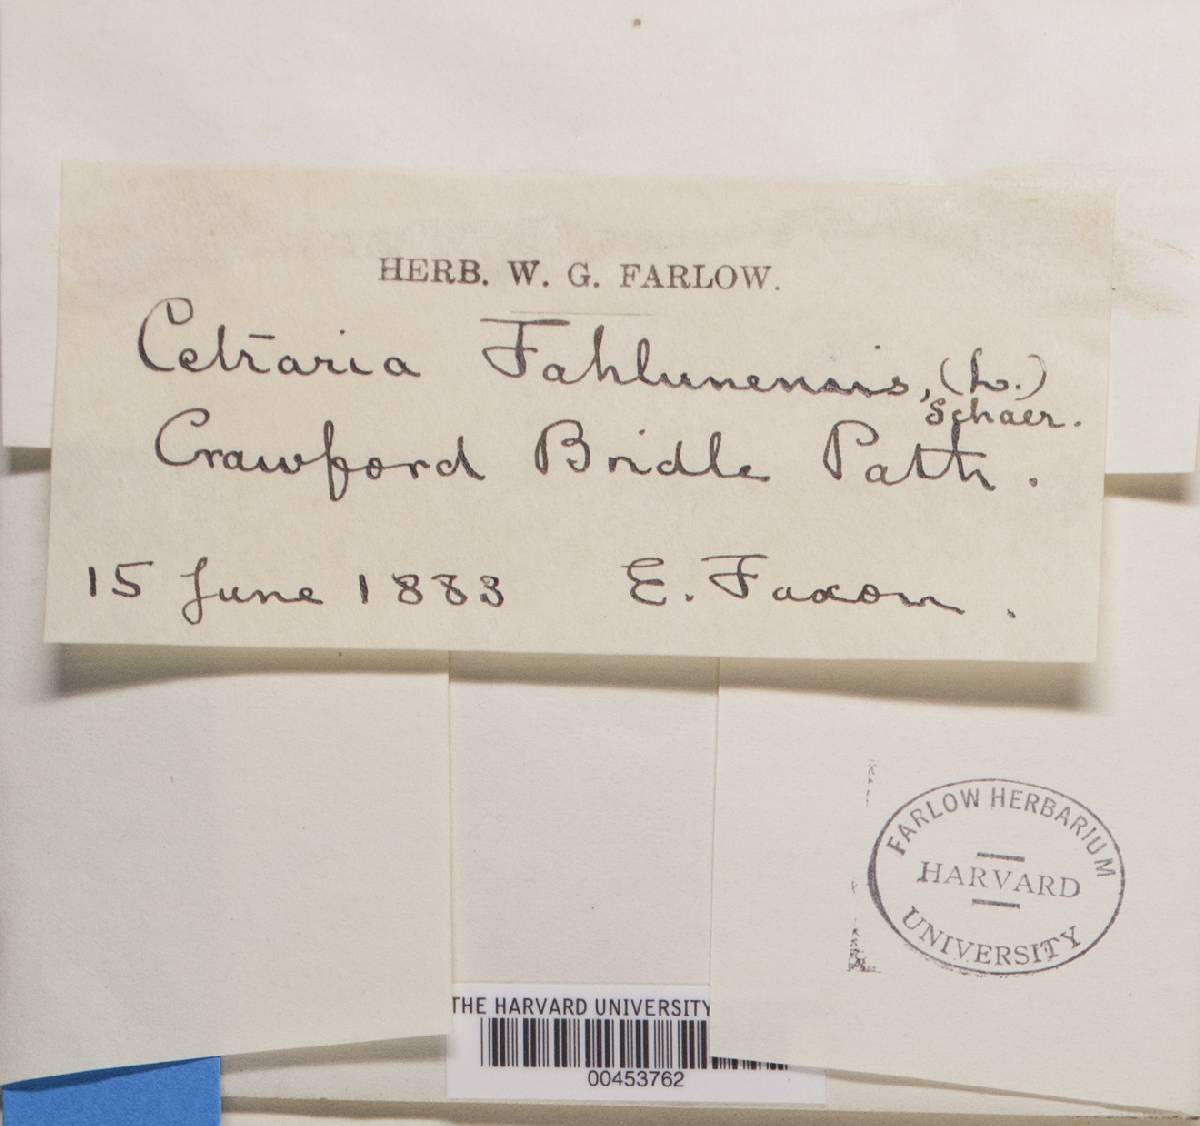 HERB. W. G. FARLOW.
Cetraria Fahlunensis, (L.)
Schaer.
Crawford Bridle Path.
15 June 1883 E. Faxon.
FARLOW HERBARIUM
HARVARD
UNIVERSITY
THE HARVARD UNIVERSITY
00453762